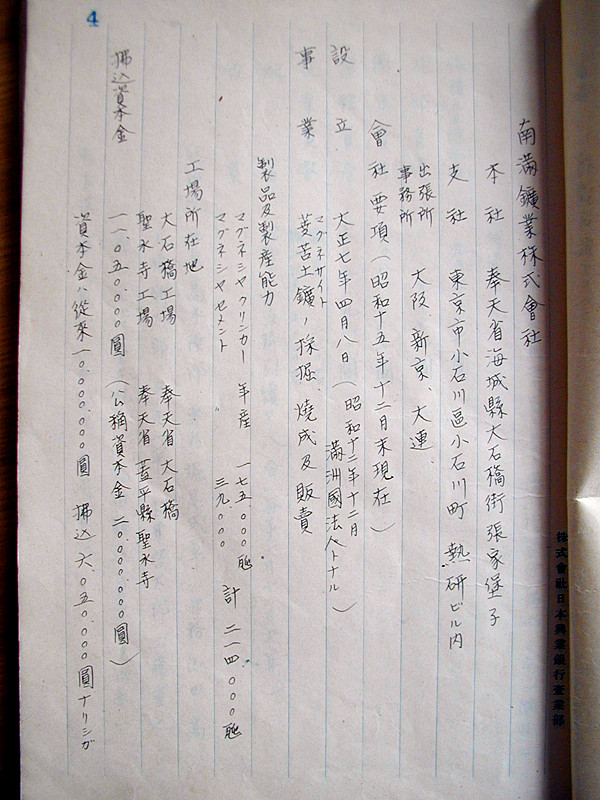 南滿鑛業株式會社
本社 奉天省海城縣大石橋街張家堡子
支社 東京市小石川區小石川町 熱研ビル内
出張所
事務所 大阪、新京、大連
會社要項(昭和十五年十二月末現在)
設立 大正七年四月八日(昭和十二年十二月
滿洲國法人トナル)
マグネサイト
事業 菱苦土鑛ノ採掘、燒成及販賣
製品及製産能力
マグネシヤクリンカー 年産 一七五、〇〇〇瓲
マグネシヤセメント 三九、〇〇〇 計 二一四、〇〇〇瓲
工場所在地
大石橋工場 奉天省大石橋
聖水寺工場 奉天省蓋平縣聖水寺
拂込資本金 一一、〇五〇、〇〇〇圓(公稱資本金 二〇、〇〇〇、〇〇〇圓)
資本金ハ從來一〇、〇〇〇、〇〇〇圓 拂込六、〇五〇、〇〇〇圓ナリシガ
4
株式會社日本興業銀行査業部